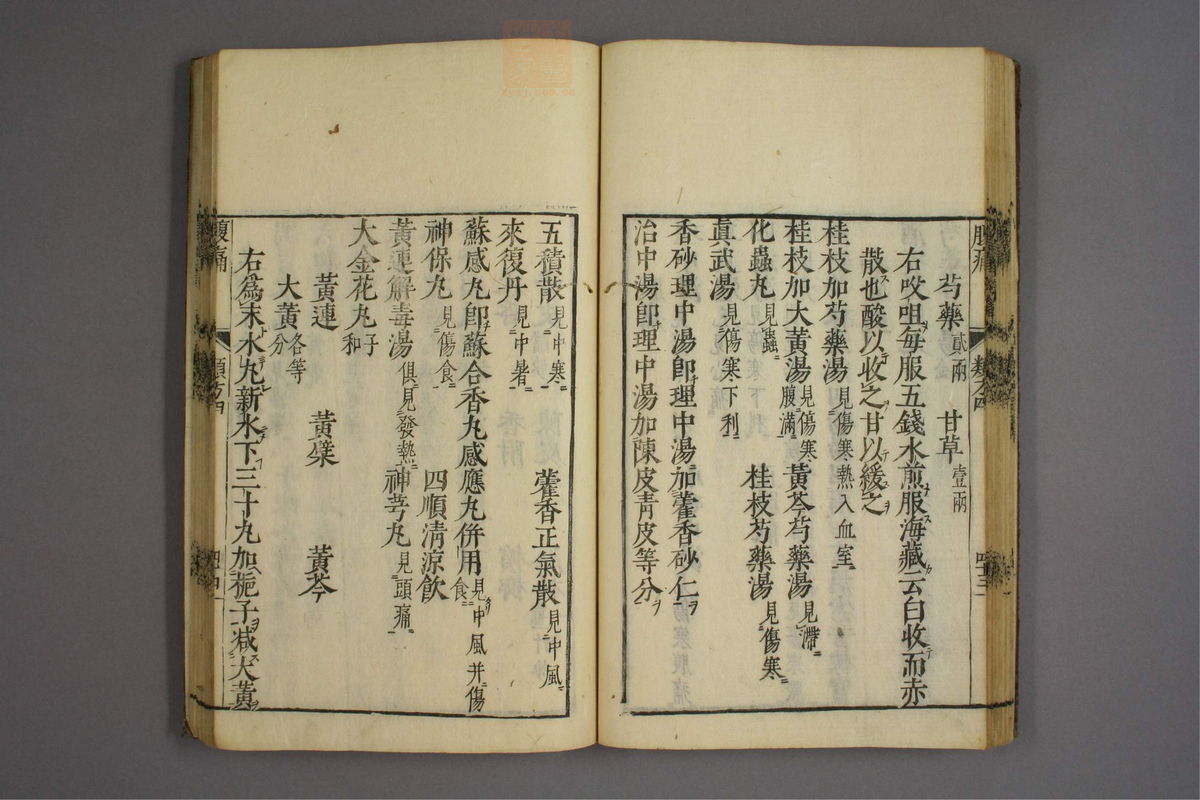 芍藥 貳兩 甘草 壹兩
右㕮咀每服五錢水煎服海藏云白收而赤
散也酸以收之甘以緩之
桂枝加芍藥湯 見傷寒熱入血室
桂枝加大黃湯 見傷寒腹滿 黃芩芍藥湯 見滯
化蟲丸 見蟲 桂枝芍藥湯 見傷寒
眞武湯 見傷寒下利
香砂理中湯卽理中湯加藿香砂仁
治中湯卽理中湯加陳皮靑皮等分
五積散 見中寒 藿香正氣散 見中風
來復丹 見中暑
蘇感丸卽蘇合香丸感應丸併用 見中風并傷食
神保丸 見傷食 四順清涼飲
黃連解毒湯 俱見發熱 神芎丸 見頭痛
大金花丸 子和
黃連 黃檗 黃芩
大黃 各等分
右爲末水丸新水下三十丸加梔子减大黃
腹痛 類方四